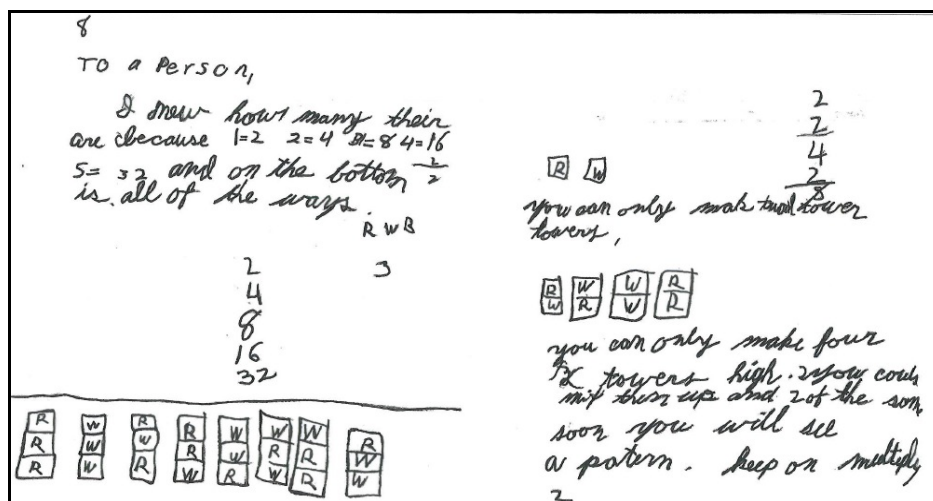 8
To a Person,
I new how many their
are because 1=2 2=4 3=8 4=16
5= 32 and on the bottom 2/2
is all of the ways.
R W B
3
2
4
8
16
32
R W R R W W W R
R W W R W R R W
R W R W R W R W
2
2
4
2
8
R W
you can only mak two tower
towers,
R W W R
W R W R
you can only make four
2X towers high. 2 you could
mix them up and 2 of the som
soon you will see
a patern. keep on multiply
2